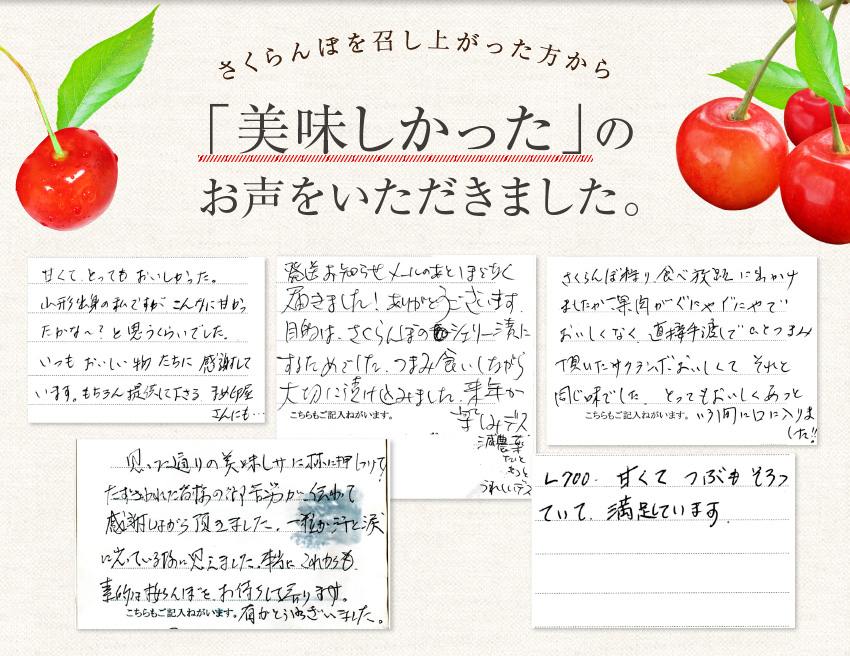 さくらんぼを召し上がった方から
「美味しかった」の
お声をいただきました。
甘くて、とっても おいしかった。
山形出身の私ですが こんなに甘かっ
たかな〜？と思うくらいでした。
いつも おいしい物 たちに 感謝して
います。もちろん提供して下さる
さんにも…
発送お知らせメールのあとほどなく
届きました！ありがとうございます。
目的は、さくらんぼのシェリー漬に
するためでした。つまみ食いしながら
大切に漬け込みました。来年が
こちらもご記入ねがいます。
楽しみデス
減農薬
だと
もっと
うれしいデス
さくらんぼ狩り、食べ放題に出かけ
ましたが、果肉がぐにゃぐにゃで
おいしくなく、直接手渡しで ひとつまみ
頂いたサクランボ、おいしくて それと
同じ味でした。とってもおいしくあっと
こちらもご記入ねがいます。
いう間に口に入りま
した!!
思った通りの美味しサに
たずさわれた皆様の御苦労が、伝わって
感謝しながら頂きました。一粒が汗と涙
に光っている様に思えました。本当に これからも
素的なさくらんぼを お待ちして居ります。
こちらもご記入ねがいます。
有がとうございました。
L700. 甘くて つぶも そろっ
ていて、満足しています。